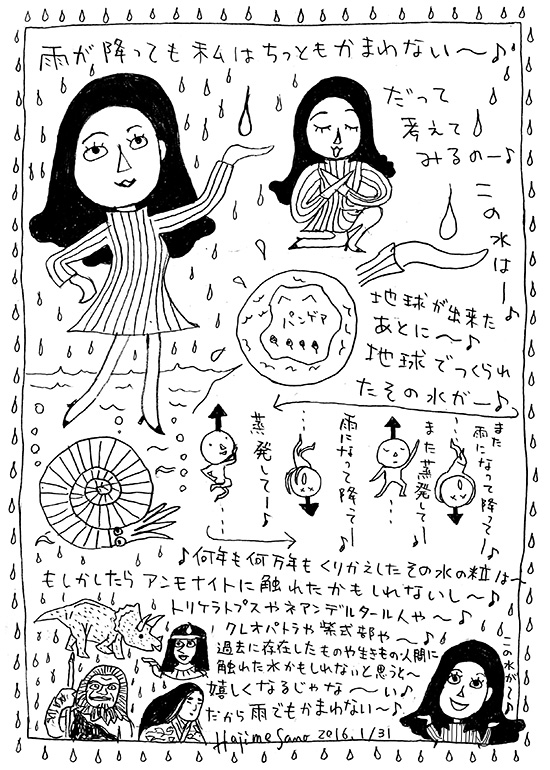 雨が降っても私はちっともかまわない〜♪
だって
考えて
みるのー♪
この水はー♪
パンゲア
地球が出来た
あとに〜♪
地球でつくられ
たその水がー♪
蒸発してー♪
雨になって降ってー
また蒸発してー
また
雨になって降ってー♪
♪何年も何万年もくりかえしたその水の粒は〜
もしかしたらアンモナイトに触れたかもしれないし〜♪
トリケラトプスやネアンデルタール人や〜♪
クレオパトラや紫式部や〜♪
過去に存在したものや生きもの人間に
触れた水かもしれないと思うと〜
嬉しくなるじゃな〜い♪
だから雨でもかまわない〜♪
この水が〜♪
Hajime Sano 2016.1/31